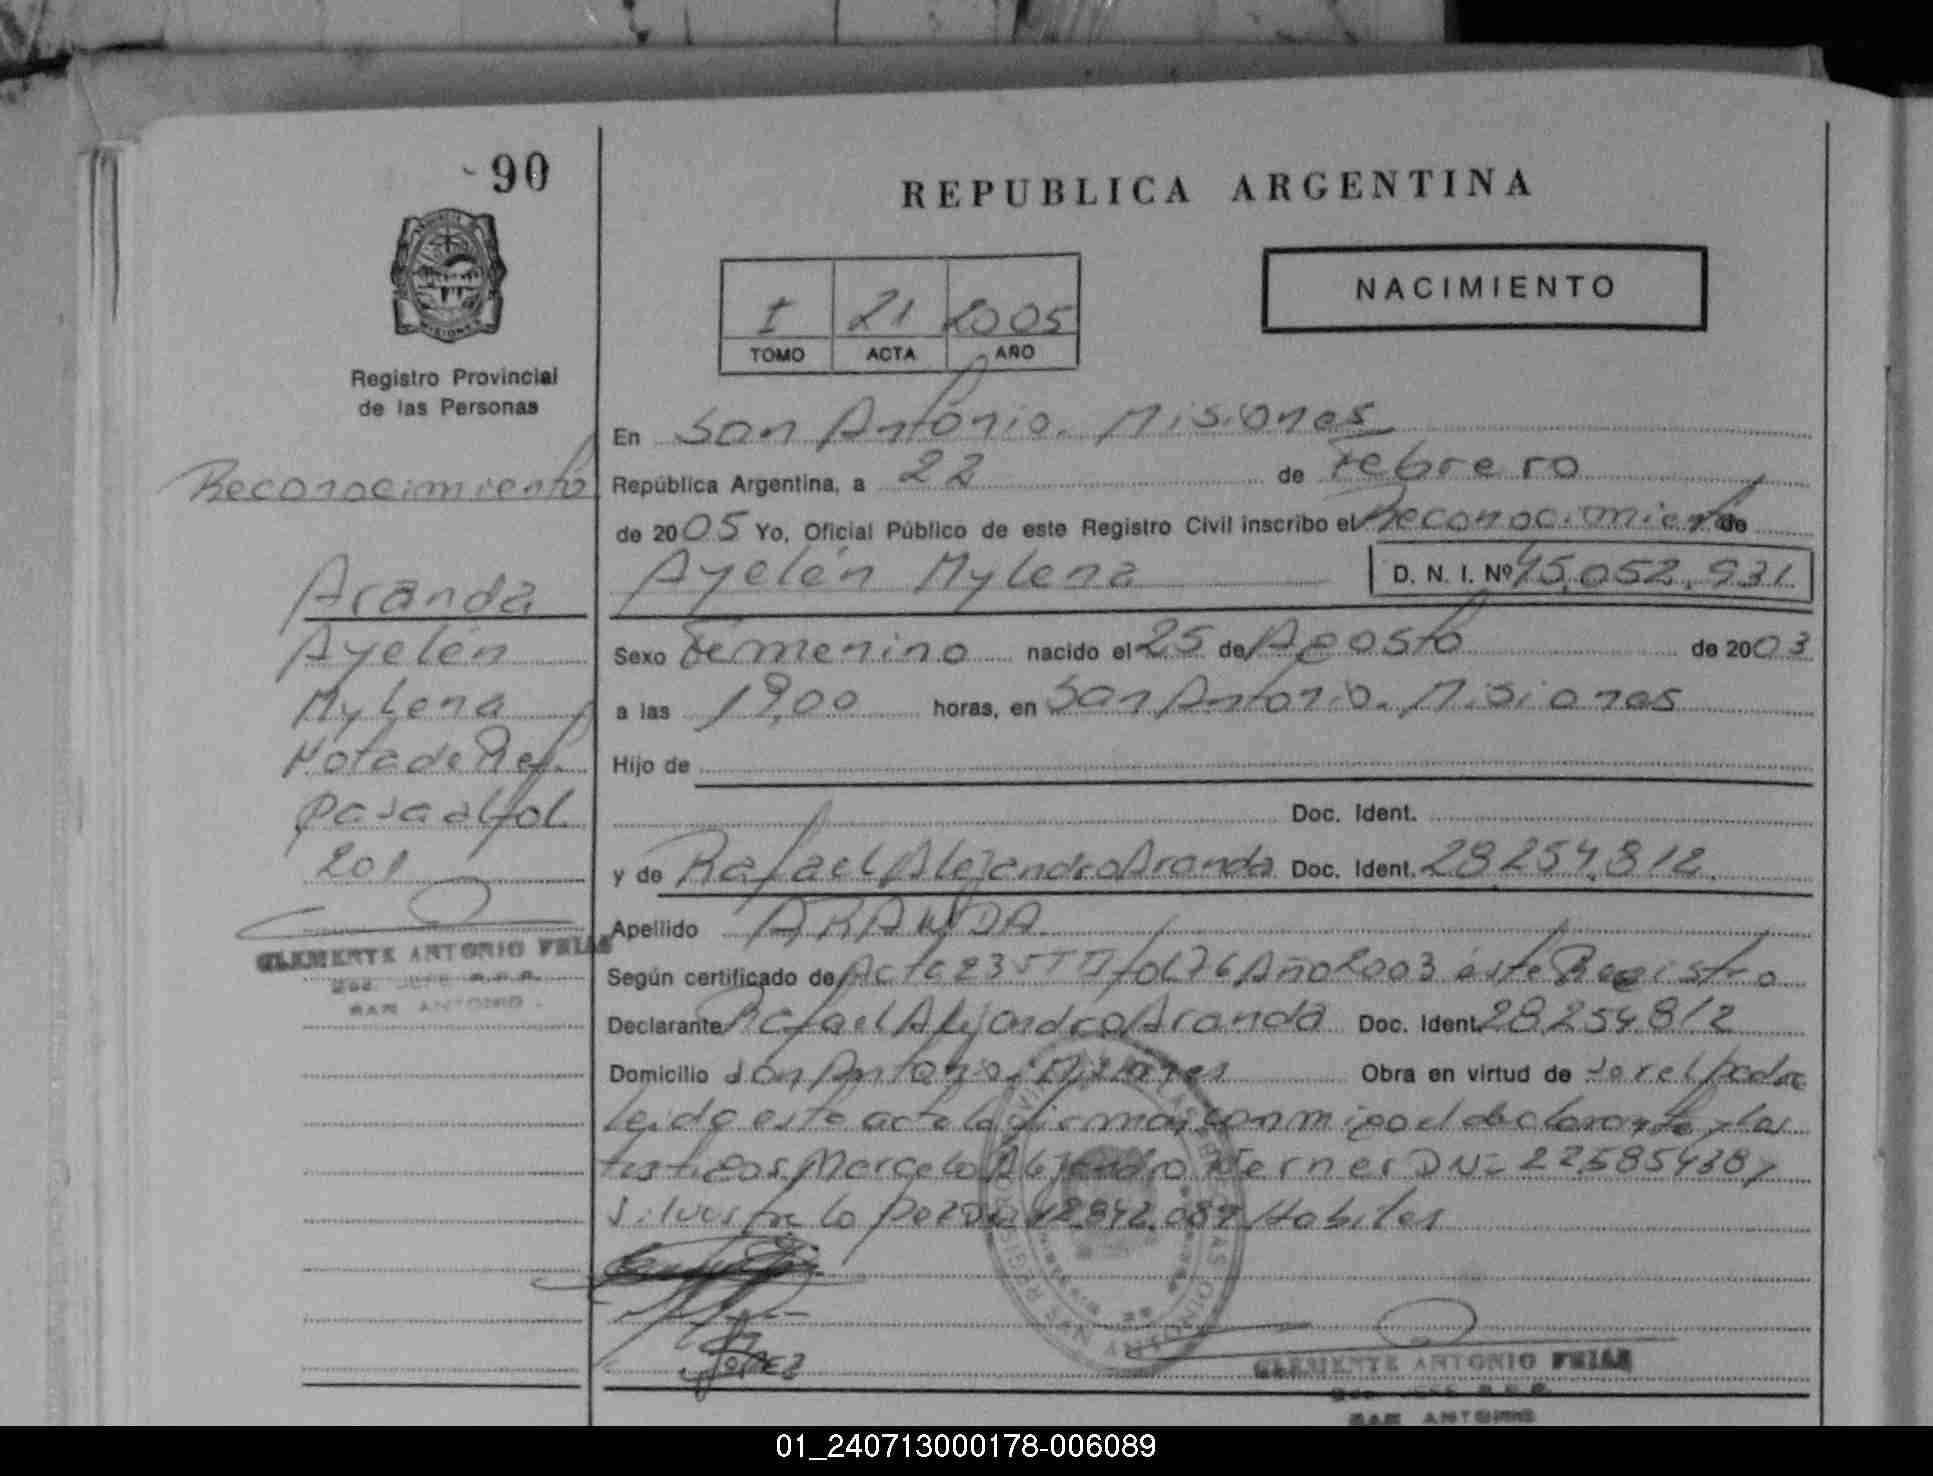 90
REPUBLICA ARGENTINA
NACIMIENTO
I 21 2005
TOMO ACTA AÑO
Registro Provincial
de las Personas
Reconocimiento
Aranda
Ayelén
Mylena
Nota de Ref.
pasa al fol.
201
CLEMENTE ANTONIO FRIAS
SAN ANTONIO
En San Antonio. Misiones
República Argentina, a 22 de Febrero
de 2005 Yo, Oficial Público de este Registro Civil inscribo el Reconocimiento de
Ayelén Mylena D. N. I. Nº 45.052.931
Sexo Femenino nacido el 25 de Agosto de 2003
a las 19,00 horas, en San Antonio. Misiones
Hijo de
Doc. Ident.
y de Rafael Alejandro Aranda Doc. Ident. 28.254.812.
Apellido ARANDA
Según certificado de Acta 235 fol 76 Año 2003 éste Registro
Declarante Rafael Alejandro Aranda Doc. Ident. 28254812
Domicilio San Antonio, Misiones Obra en virtud de ser el padre
Leida este acta la firman conmigo el declarante y los
testigos Marcelo Alejandro Werner 22585438 y
Habiles
CLEMENTE ANTONIO FRIAS
SAN ANTONIO
01_240713000178-006089